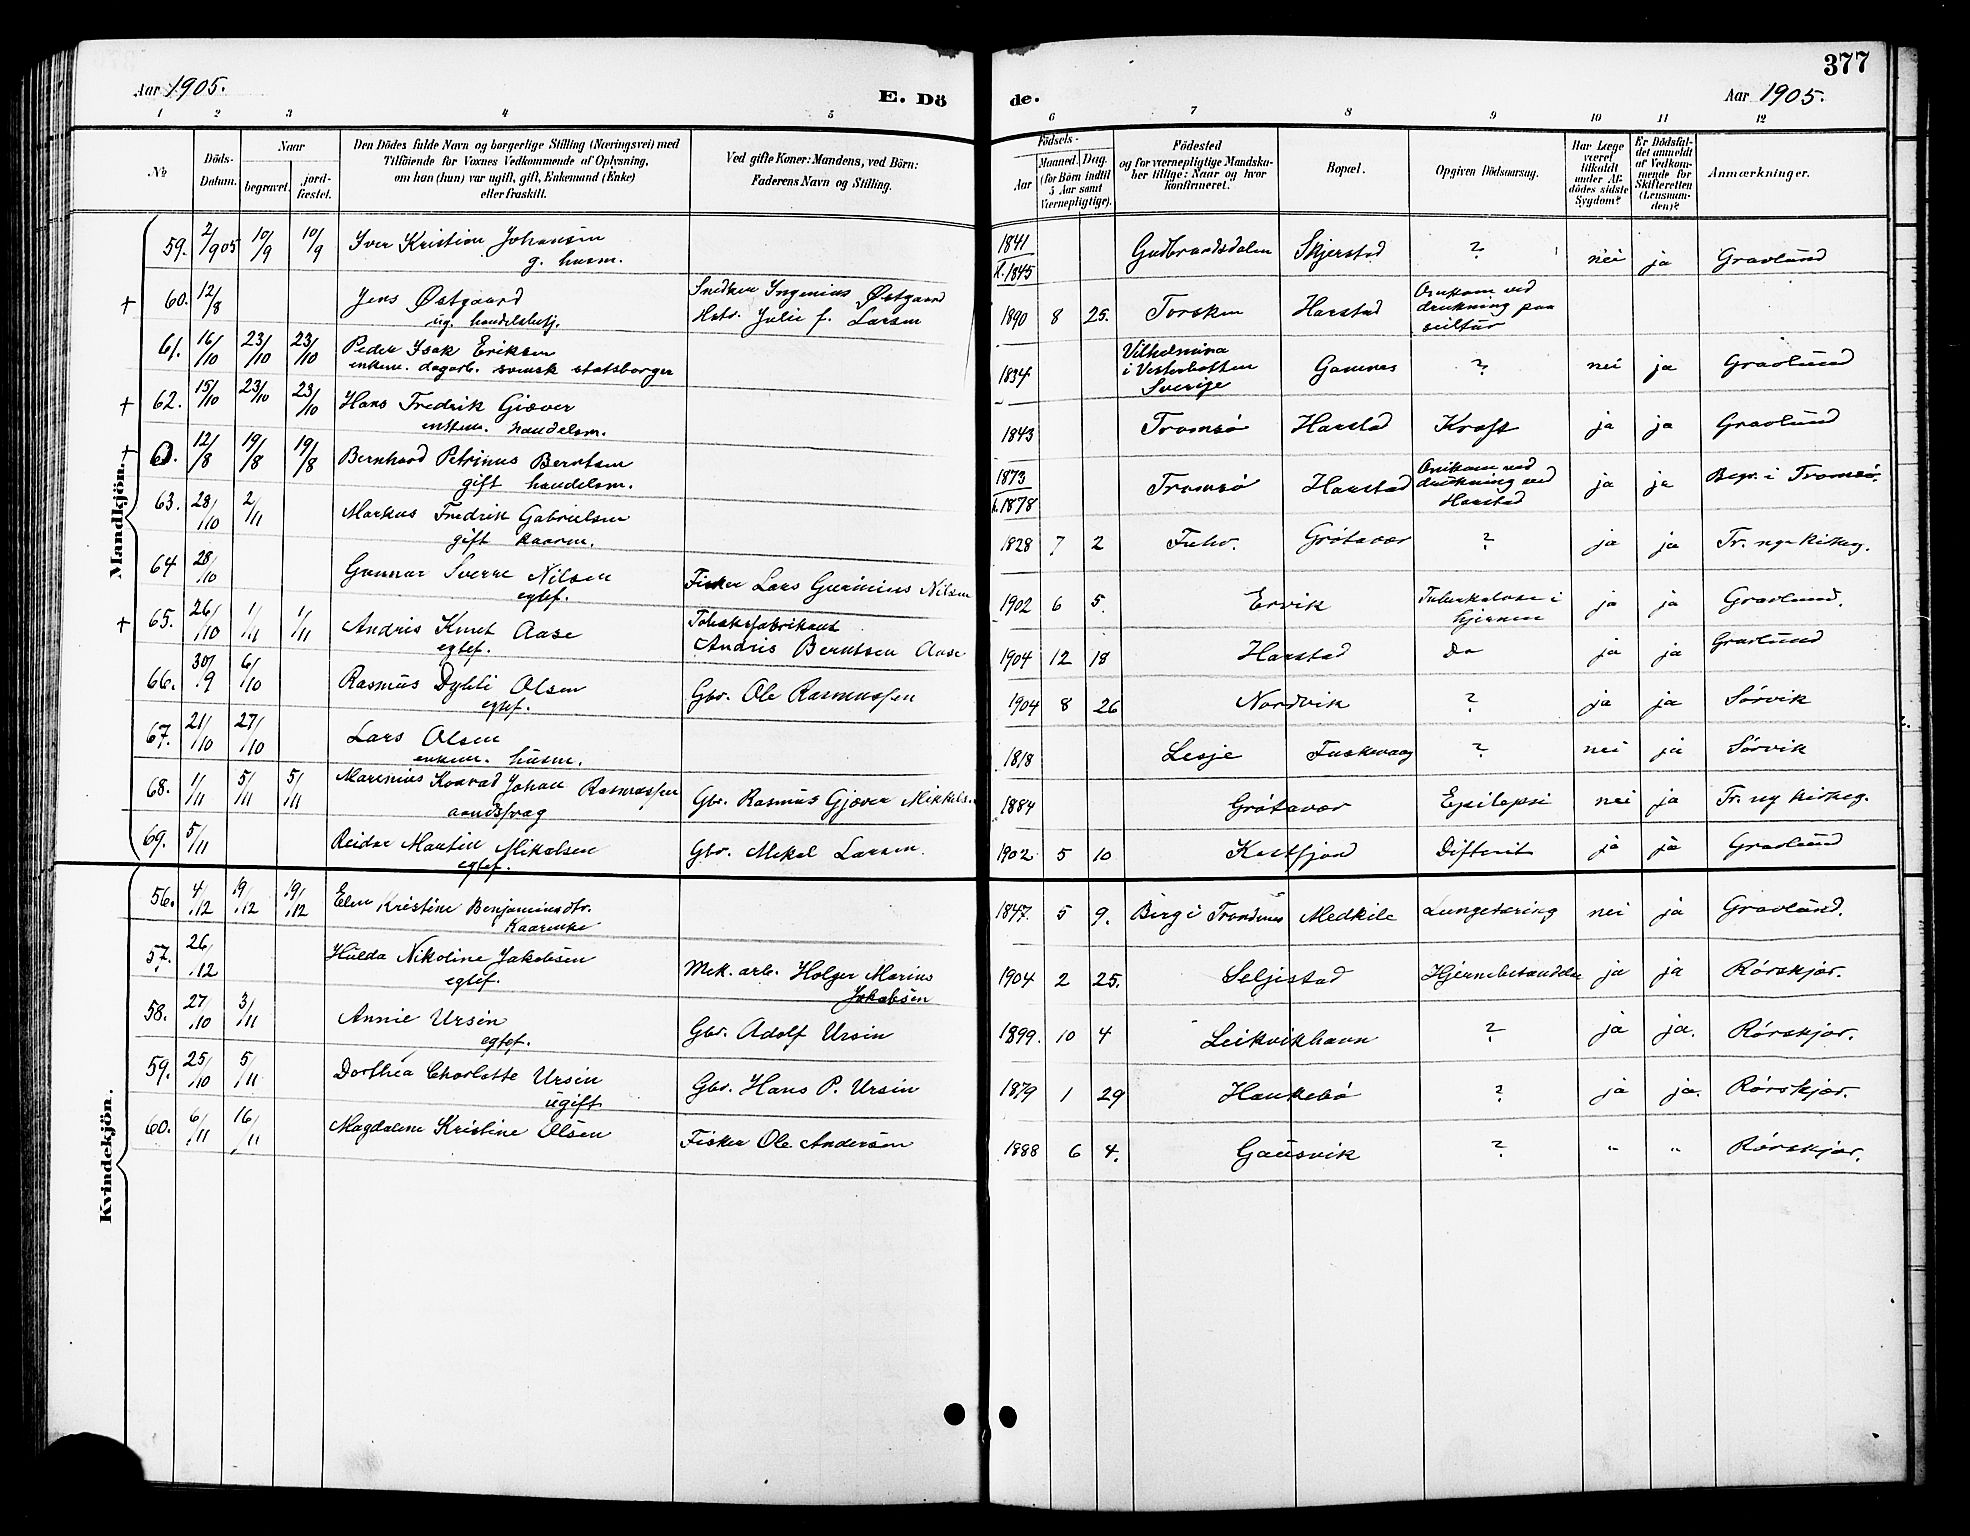 377
Aar 1905.
E. Dö
de.
Aar 1905.
1 2 3 4 5 6 7 8 9 10 11 12
No
Döds-Datum.
Naar
begravet.
jord-fæstet.
Den Dödes fulde Navn og borgerlige Stilling (Næringsvei) med
Tilföiende for Voxnes Vedkommende af Oplysning,
om han (hun) var ugift, gift, Enkemand (Enke)
eller fraskilt.
Ved gifte Koner: Mandens, ved Börn:
Faderens Navn og Stilling.
Födsels-
Aar
Maaned. Dag.
(for Börn indtil
5 Aar samt
Værnepligtige).
Födested
og for værnepligtige Mandska-
ber tillige: Naar og hvor
konfirmeret.
Bopæl.
Opgiven Dödsaarsag.
Har Læge
været
tilkaldt
under Af-
dödes sidste
Sygdom?
Er Dödsfal-
det anmeldt
af Vedkom-
mende for
Skifteretten
(Lensman-
den)?
Anmærkninger.
Mandkjön.
59. 2/905 10/9 10/9 Iver Kristian Johansen 1841 Gudbrandsdalen Skjerstad ? nei ja Gravlund
g. husm. 1845
+ 60. 12/8 Jens Østgaard Snedker Ingenius Østgaard 1890 8 25. Torsken Harstad Omkom ved
ug. handelsbetj. Hstr. Julie f. Larsen drukning paa
seiltur
61. 16/10 23/10 23/10 Peder Isak Eriksen 1834 Vilhelmina Gamnes ? nei ja Gravlund
enkem. dagarb. svensk statsborger i Vesterbotten
Sverige
+ 62. 15/10 23/10 23/10 Hans Fredrik Giæver 1843 Tromsø Harstad Kræft ja ja Gravlund
enkem. handelsm.
+ 12/8 19/8 19/8 Bernhard Petrinus Berntsen 1873 Tromsø Harstad Omkom ved ja ja Begr. i Tromsø.
gift handelsm. 1878 drukning ved
Harstad
63. 28/10 2/11 Markus Fredrik Gabrielsen 1828 7 2 Grøtavær ? ja ja Tr. nye kirkeg.
gift kaarm.
64 28/10 Gunnar Sverre Nilsen Fisker Lars Nilsen 1902 6 5. Ervik Tuberkulose i ja ja Gravlund.
egtef. hjernen
+ 65. 26/10 1/11 1/11 Andris Knut Aase Tobaksfabrikant 1904 12 18 Harstad Do ja ja Gravlund
egtef. Andris Berntsen Aase
66. 30/9 6/10 Rasmus Olsen Gbr. Ole Rasmussen 1904 8 26 Nordvik ? ja ja Sørvik
egtef.
67. 21/10 27/10 Lars Olsen 1818 Lesje Fuskevaag ? nei ja Sørvik
enkem. husm.
68. 1/11 5/11 5/11 Marenius Konrad Johan Rasmussen Gbr. Rasmus Gjæver Mikkels. 1884 Grøtavær Epilepsi nei ja Tr. ny kirkeg.
aandssvag
69. 5/11 Reidar Martin Mikalsen Gbr. Mikal Larsen. 1902 5 10 Kastfjord Difterit ja ja Gravlund
egtef.
Kvindekjön.
56. 4/12 19/12 19/12 Elen Kristine Benjaminsdtr. 1847. 5 9. Birg i Trondenes Medkile Lungetæring nei ja Gravlund.
Kaarenke
57. 26/12 Hulda Nikoline Jakobsen Mek. arb. Holger Marius 1904 2 25. Seljestad Hjernebetændelse ja ja Rørskjær.
egtef. Jakobsen
58. 27/10 3/11 Annie Ursin Gbr. Adolf Ursin 1899. 10 4 Leikvikhavn ? ja ja. Rørskjær.
egtef.
59. 25/10 5/11 Dorthea Charlotte Ursin Gbr. Hans P. Ursin 1879 1 29 Haukebø ? ja ja. Rørskjær.
ugift
60. 6/11 16/11 Magdalene Kristine Olsen Fisker Ole Andersen 1888 6 4. Gausvik ? " " Rørskjær.